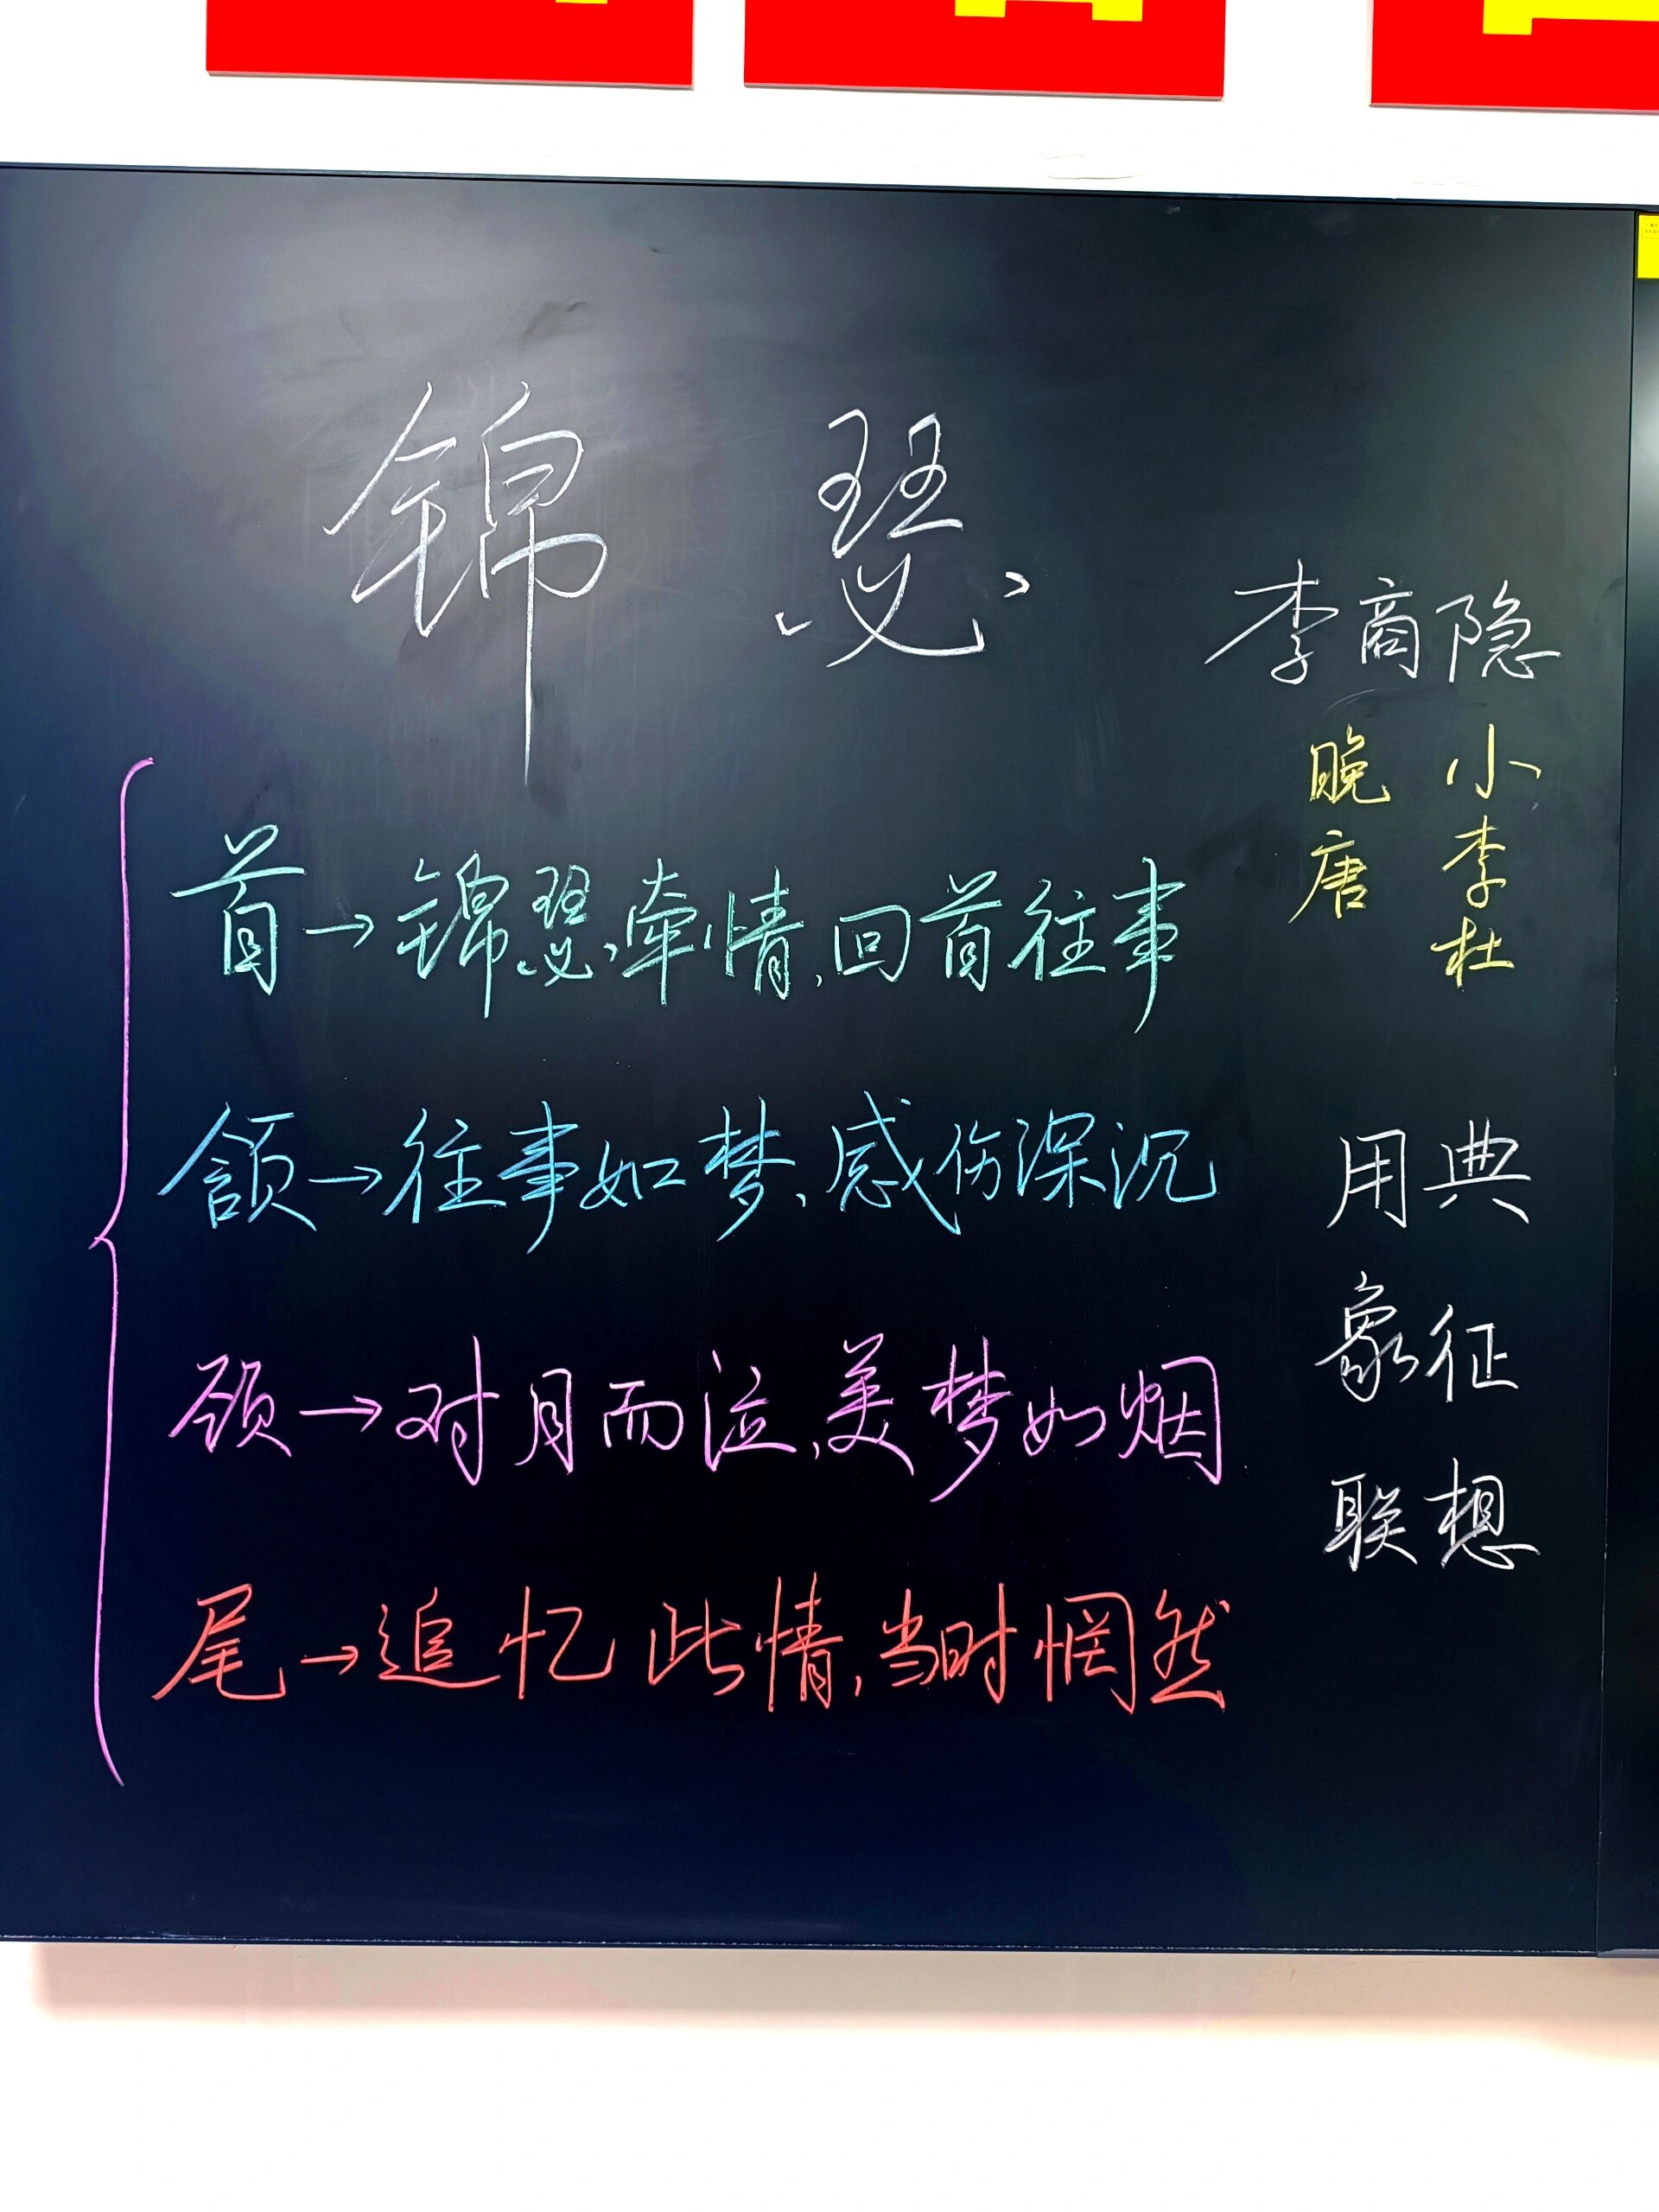 锦瑟
李商隐
晚唐
小李杜
首→锦瑟牵情,回首往事
额→往事如梦,感伤深沉
颈→对月而泣,美梦如烟
尾→追忆此情,当时惘然
用典
象征
联想